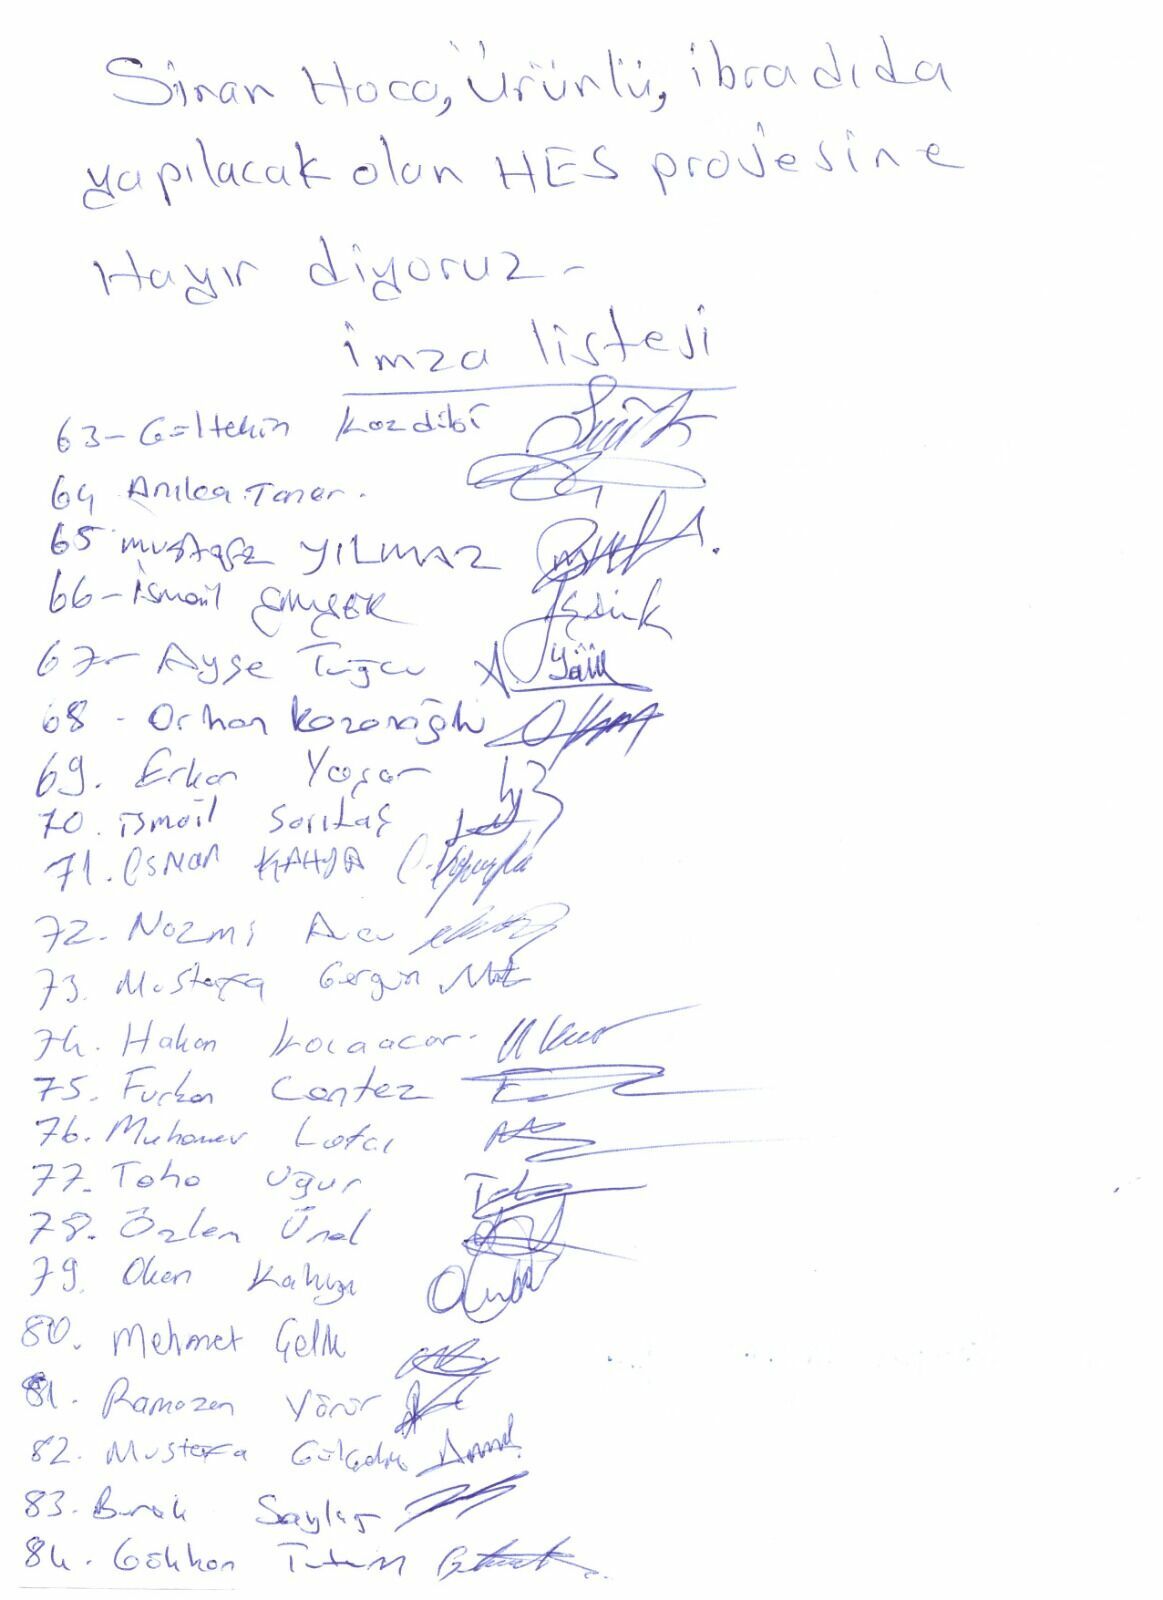 Sinan Hoca, Ürünlü, ibradıda
yapılacak olan HES projesine
Hayır diyoruz-
imza listesi
63- Gültekin Kozdibi
64 Taner.
65 mustafa YILMAZ
66- ismail ŞimşeK
67- Ayşe Tuğcu
68 - Orhan Kozanoğlu
69. Erkan Yaşar
70. ismail Sarıtaş
71. OSMAN KAHYA
72. Nazmi Avcı
73. Mustafa Gergin
74. Hakan Kocaacar-
75. Furkan Contez
76. Muhamer
77. Taha Uğur
78. Özlen Ünal
79. Oken Kahya
80. Mehmet Çelik
81. Ramazan Yörür
82. Mustafa
83. Burak
84. Gökhan